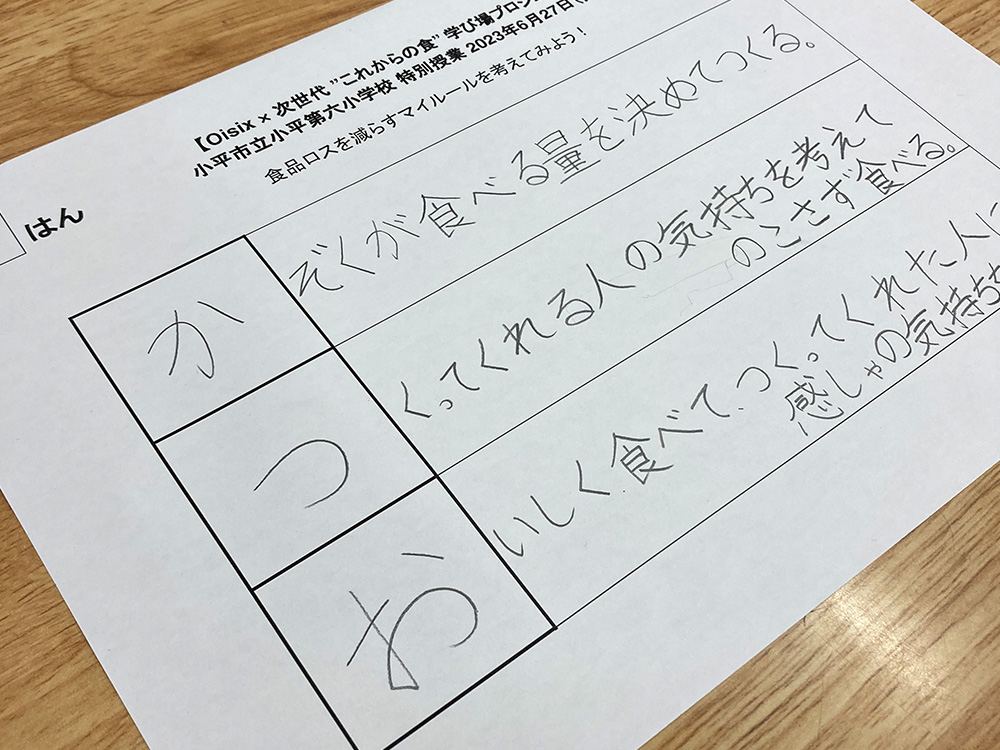 【Oisix × 次世代 "これからの食" 学び場プロジ
小平市立小平第六小学校 特別授業 2023年6月27日(
食品ロスを減らすマイルールを考えてみよう！
はん
か
ぞくが食べる量を決めてつくる。
つ
くってくれる人の気持ちを考えて
のこさず食べる。
お
いしく食べて、つくってくれた人に
感しゃの気持ち